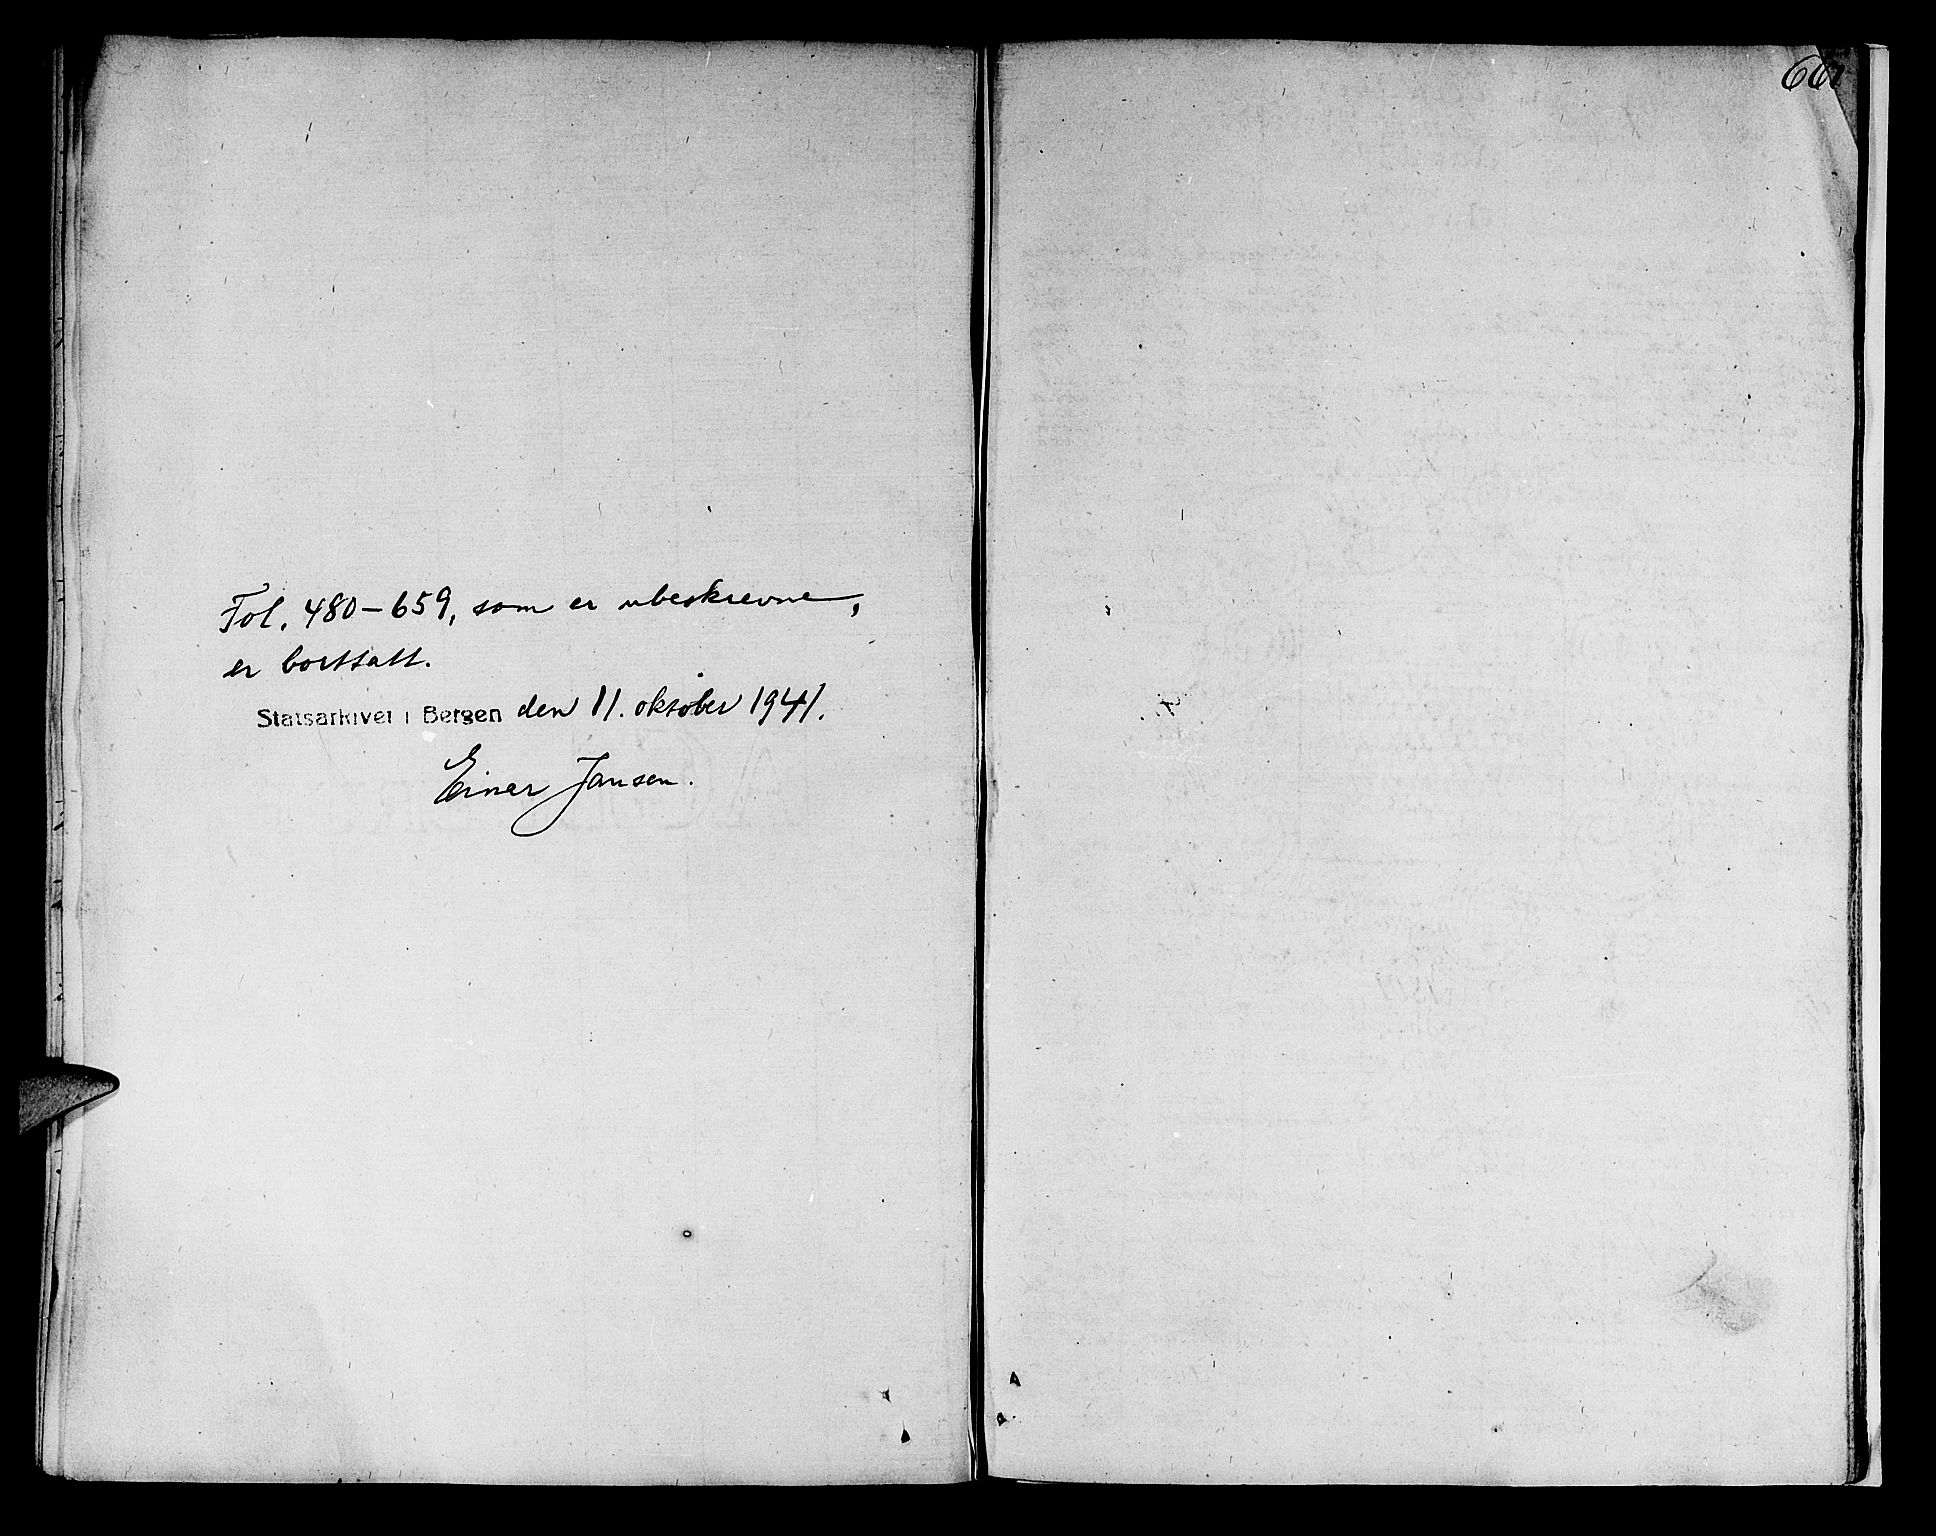 Fol. 480-659, som er ubeskrevne,
er borttatt.
Statsarkivet i Bergen den 11. oktober 1941.
Einar Jansen.